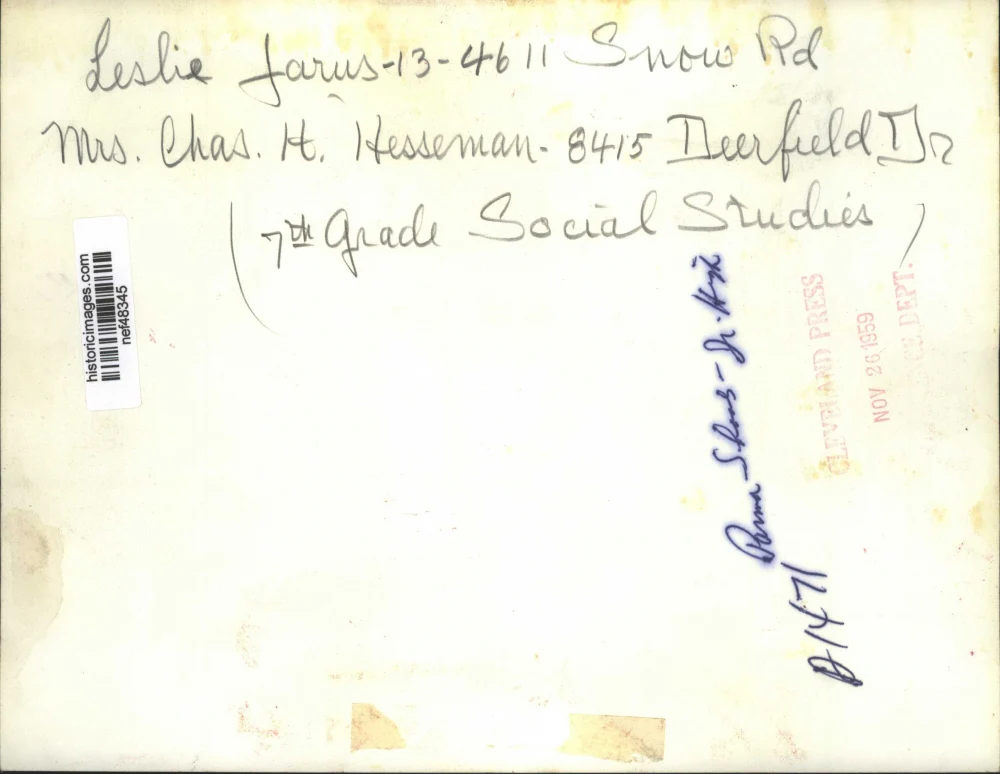 Leslie Jarus-13-4611 Snow Rd
Mrs. Chas. H. Hesseman- 8415 Deerfield Dr
(7th Grade Social Studies)
historicimages.com
nef48345
Parma - Schools - Jr. High
D1471
CLEVELAND PRESS
NOV 26 1959
CE. DEPT.